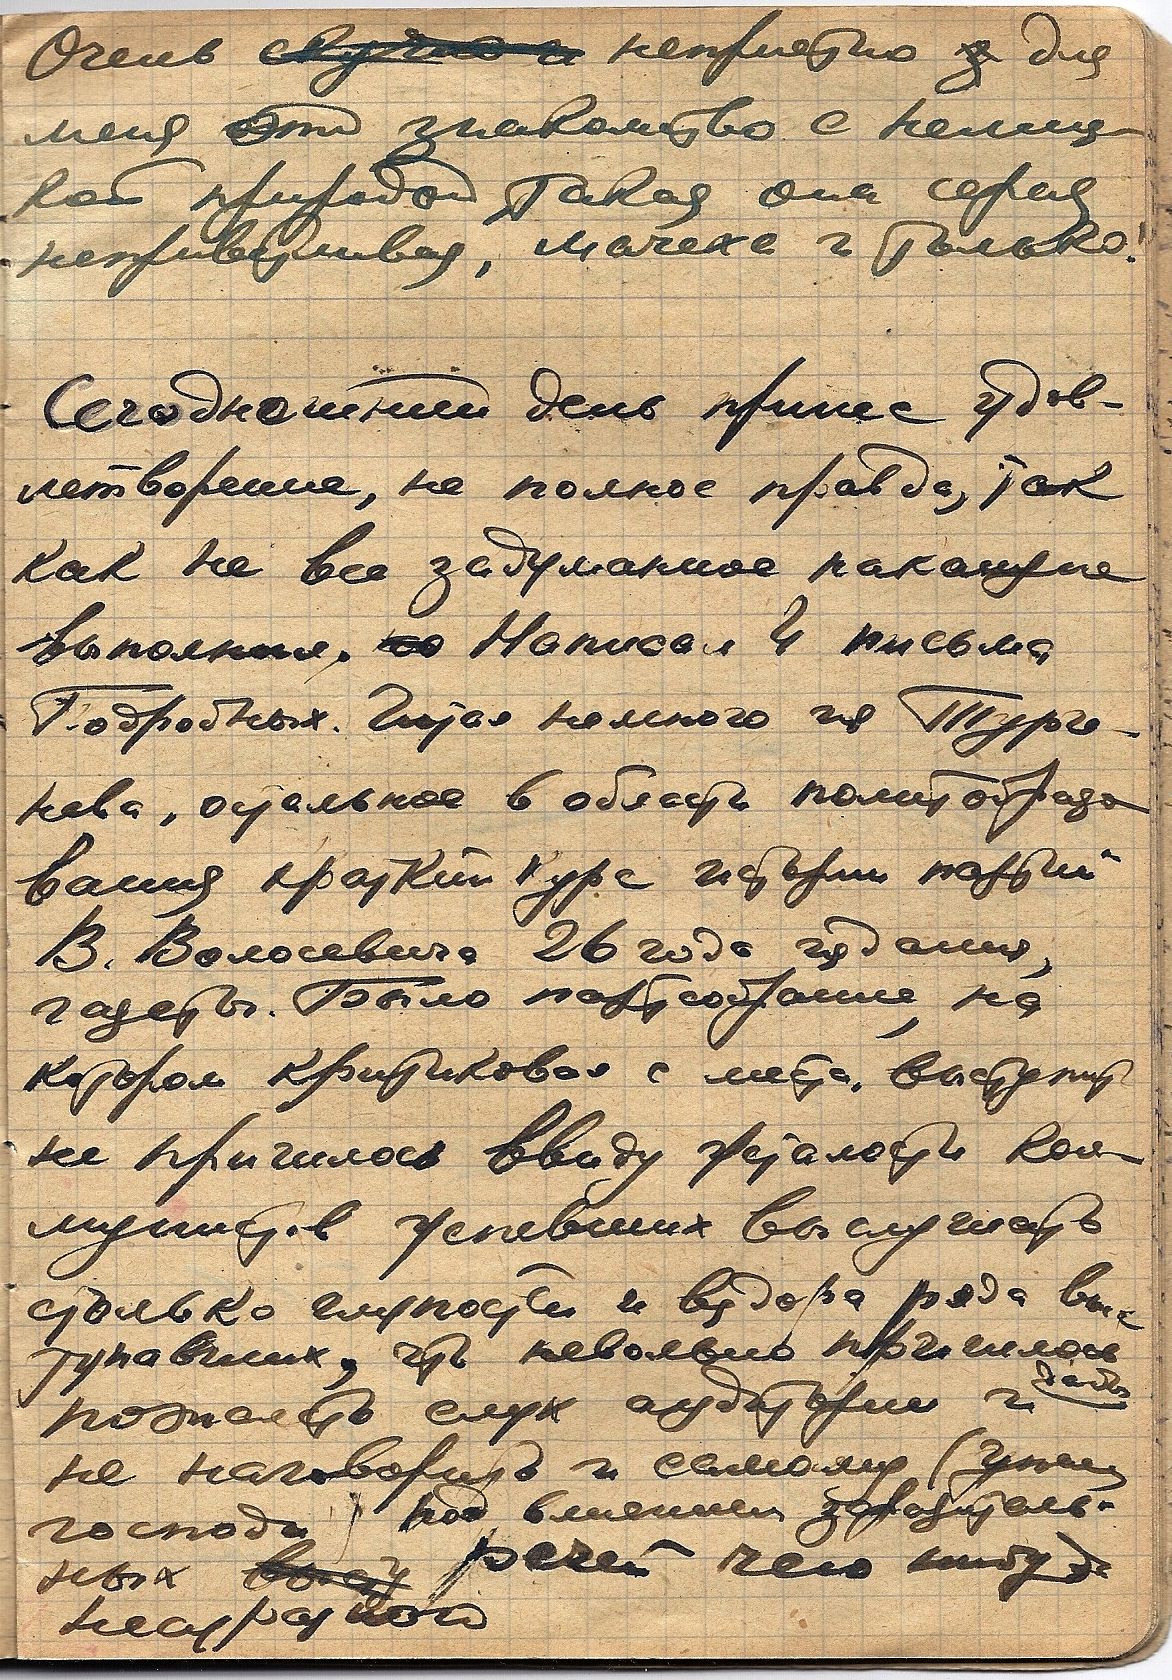 Очень скучно и неприетно з для
меня это знакомство с немец-
кой природой, такая она серая
неприветливая, мачеха и только!
Сегодношний день принес удов-
летворение, не полное правда, так
как не все задуманное накануне
выполнил. Написал 4 письма
Подробных. Читал немного из Турге-
нева, остальное в области политобразо
вания краткий курс истории партии
В. Волосевича 26 года издания,
газеты. Было партсобрание, на
котором критиковал с места, выступить
не пришлось ввиду усталости ком-
мунистов успевших выслушать
столько глупостей и вздора ряда выс-
тупавших, что невольно пришлось
пожалеть слух аудитории и дабы
не наговорить и самому (упаси
господи) под влиянием заразитель-
ных речей чего нибудь
несуразного